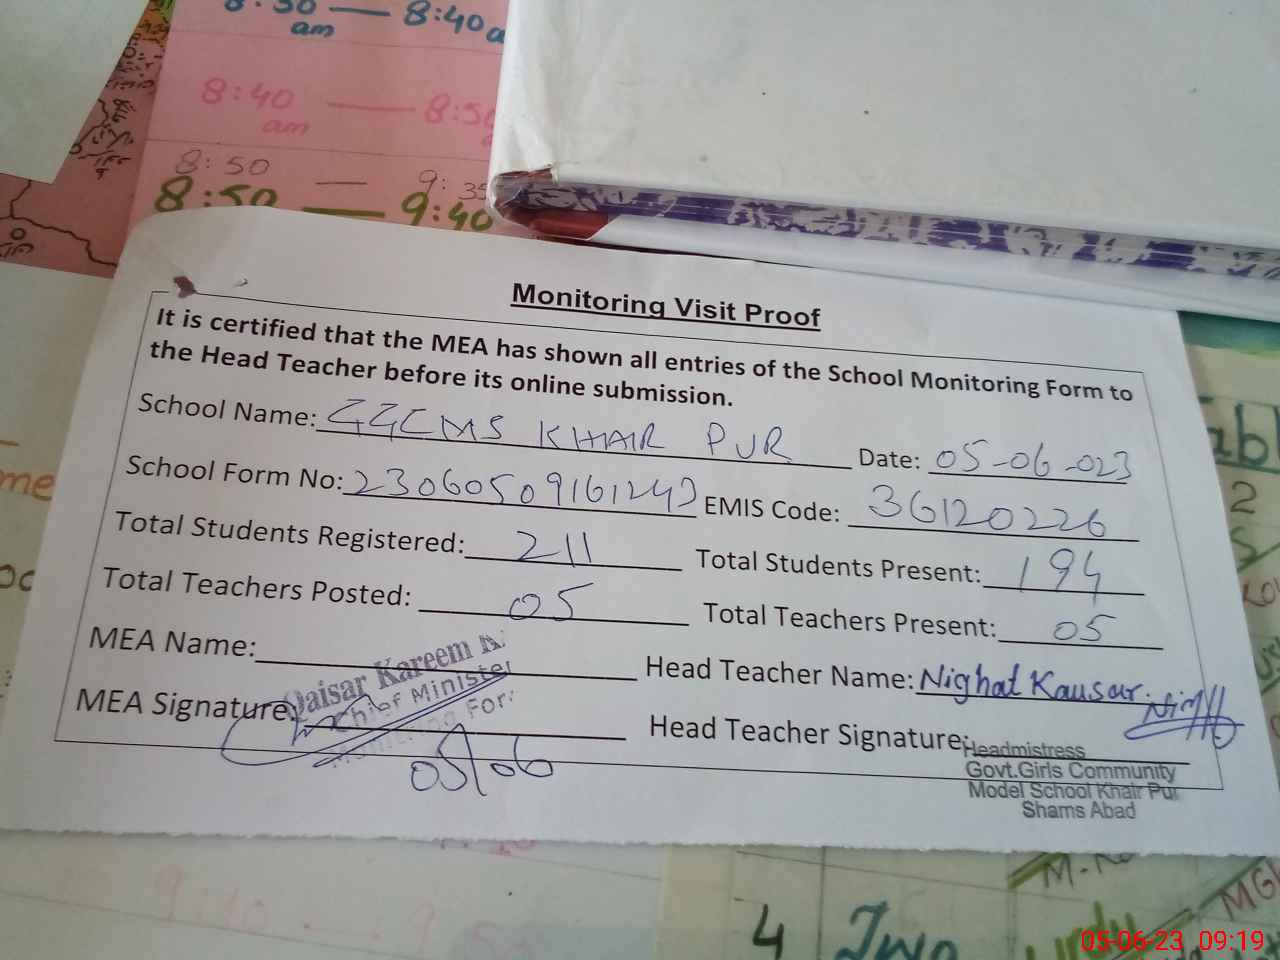 8:30 — 8:40
am
8:40 — 8:50
am
8:50 — 9:35
8:50 — 9:40
Monitoring Visit Proof
It is certified that the MEA has shown all entries of the School Monitoring Form to
the Head Teacher before its online submission.
School Name: GGCMS KHAIR PUR Date: 05-06-023
School Form No: EMIS Code: 36120226
Total Students Registered: 211 Total Students Present: 194
Total Teachers Posted: 05 Total Teachers Present: 05
MEA Name: Head Teacher Name: Nighat Kausar
Qaisar Kareem
Chief Minister
Monitoring For
MEA Signature: Head Teacher Signature:
05/06
Headmistress
Govt.Girls Community
Model School Khair Pur
Shams Abad
9:40
4 Two Urdu
05-06-23 09:19